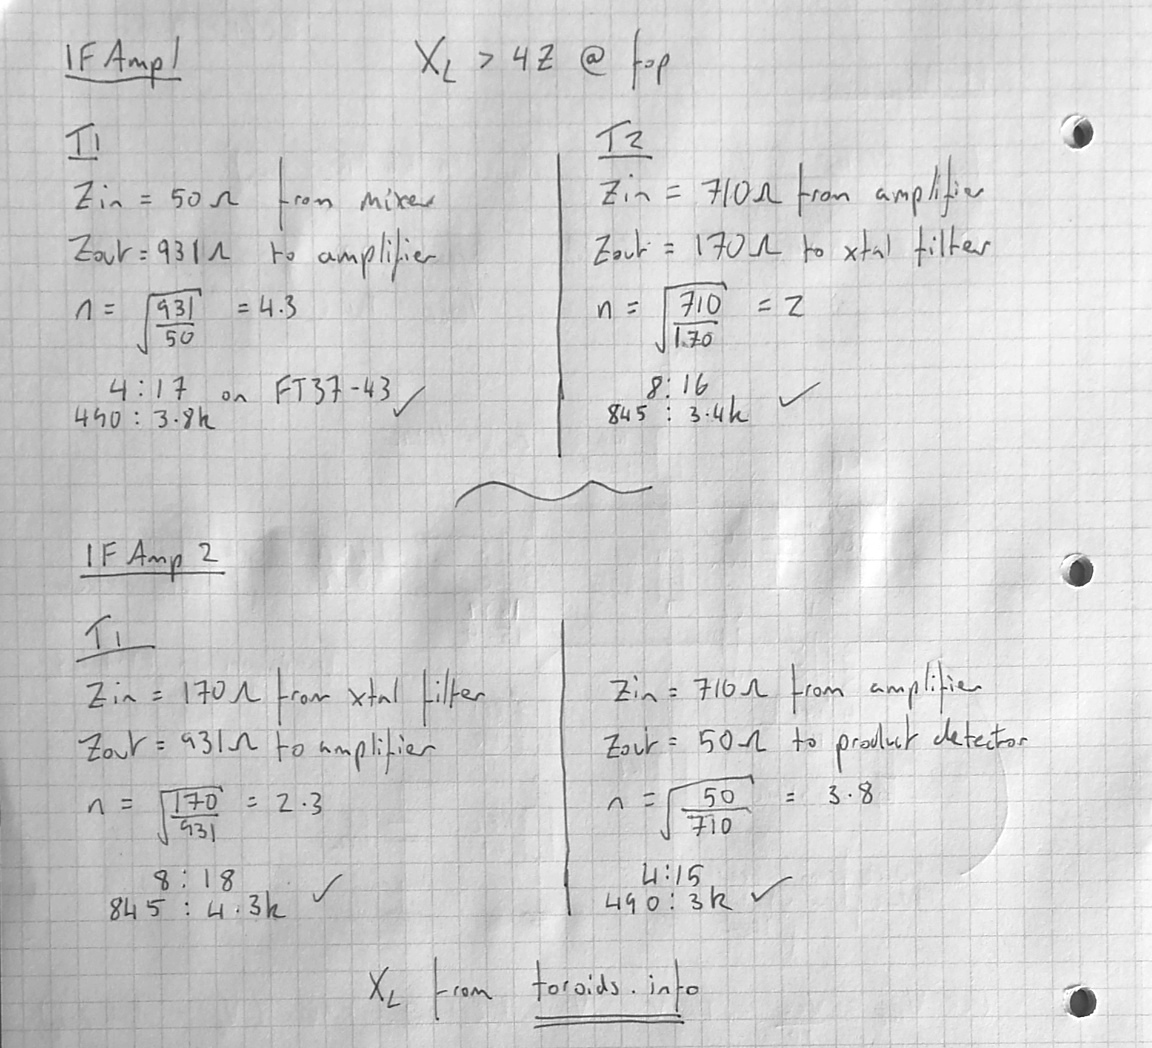 IF Amp 1
XL > 4Z @ fop
T1
Zin = 50Ω from mixer
Zout = 931Ω to amplifier
n = √931/50 = 4.3
4:17 on FT37-43 ✓
490 : 3.8k
T2
Zin = 710Ω from amplifier
Zout = 170Ω to xtal filter
n = √710/170 = 2
8:16
845 : 3.4k ✓
IF Amp 2
T1
Zin = 170Ω from xtal filter
Zout = 931Ω to amplifier
n = √170/931 = 2.3
8:18
845 : 4.3k ✓
Zin = 710Ω from amplifier
Zout = 50Ω to product detector
n = √50/710 = 3.8
4:15
490 : 3k ✓
XL from toroids.info